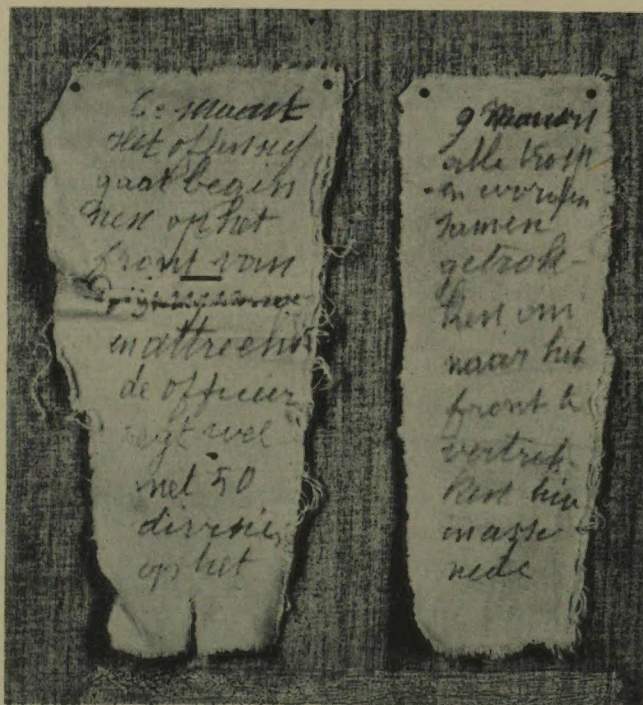 6 = maart
Het offensief
gaat begin
nen op het
front van
de officier
zegt wel
met 50
divisies
op het
9 Maart
alle troep
en worden
samen
getrok-
ken om
naar het
front te
vertrek-
ken hier
in asse
nede